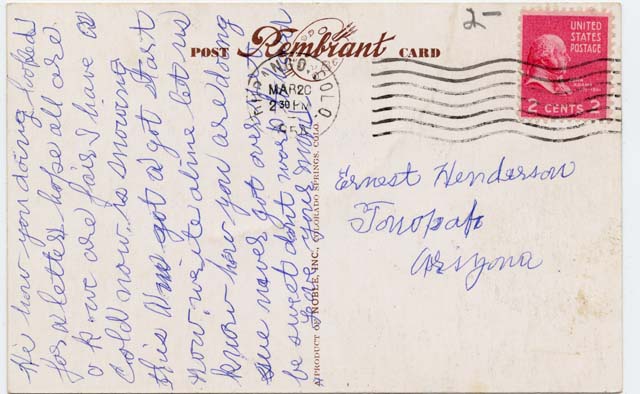 2-
POST Rembrant CARD
UNITED
STATES
POSTAGE
2 CENTS 2
DURANGO, COLO.
MAR 20
2 30 PM
Hi how you doing looked
for a letter hope all are
o k we are fair I have a
Cold now, is snowing
this got a got start
now, write aline let us
know how you are doing
never got over
be sweet dont work
Love your mom
A PRODUCT OF NOBLE, INC., COLORADO SPRINGS, COLO.
Ernest Henderson
Tonopah
Arizona